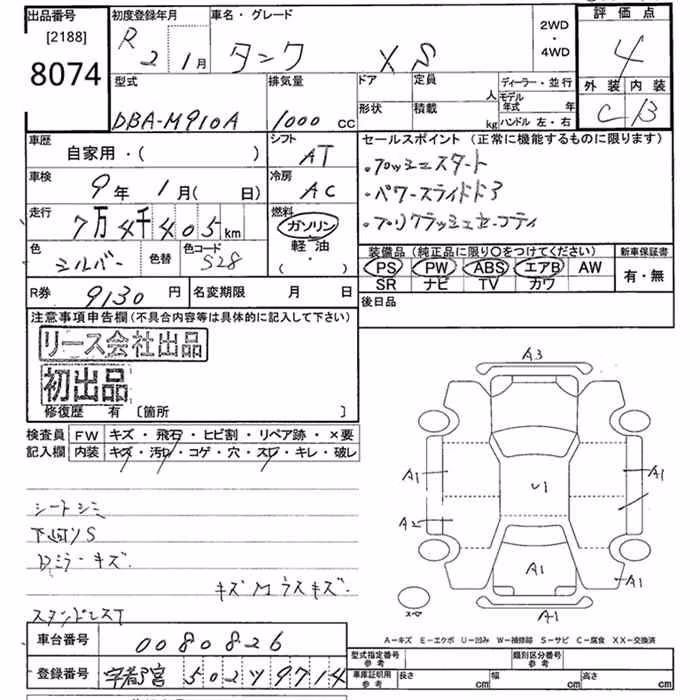 出品番号
[2188]
8074
初度登録年月
R 2 1月
車名・グレード
タンク XS
2WD
・
4WD
評価点
4
外装 内装
C B
型式
DBA-M910A
排気量
1000 cc
ドア 定員 人
形状 積載 kg
ディーラー・並行
モデル年式 年
ハンドル 左・右
車歴
自家用・( )
シフト
AT
車検
9年 1月( 日)
冷房
AC
走行
7万4千405km
燃料
ガソリン
軽・油
( ・ )
色
シルバー
色替
色コード
S28
セールスポイント(正常に機能するものに限ります)
・プッシュスタート
・パワースライドドア
・プリクラッシュセーフティ
装備品(純正品に限り〇をつけてください)
PS PW ABS エアB AW
SR ナビ TV カワ
新車保証書
有・無
R券 9130円
名変期限 月 日
後日品
注意事項申告欄(不具合内容等は具体的に記入して下さい)
リース会社出品
初出品
修復歴 有 〔箇所 〕
検査員記入欄
FW キズ・飛石・ヒビ割・リペア跡・×要
内装 キズ・汚れ・コゲ・穴・スレ・キレ・破レ
シートシミ
下廻りS
Dミラーキズ
キズMラスキズ
A3
A1
A1
U1
A1
A1
A1
スペア
A-キズ E-エクボ U-凹み W-補修跡 S-サビ C-腐食 XX-交換済
車台番号 0080826
登録番号 宇都宮 502ツ9714
型式指定番号 参考
類別区分番号 参考
車庫証明用 参考
長さ cm 幅 cm 高さ cm